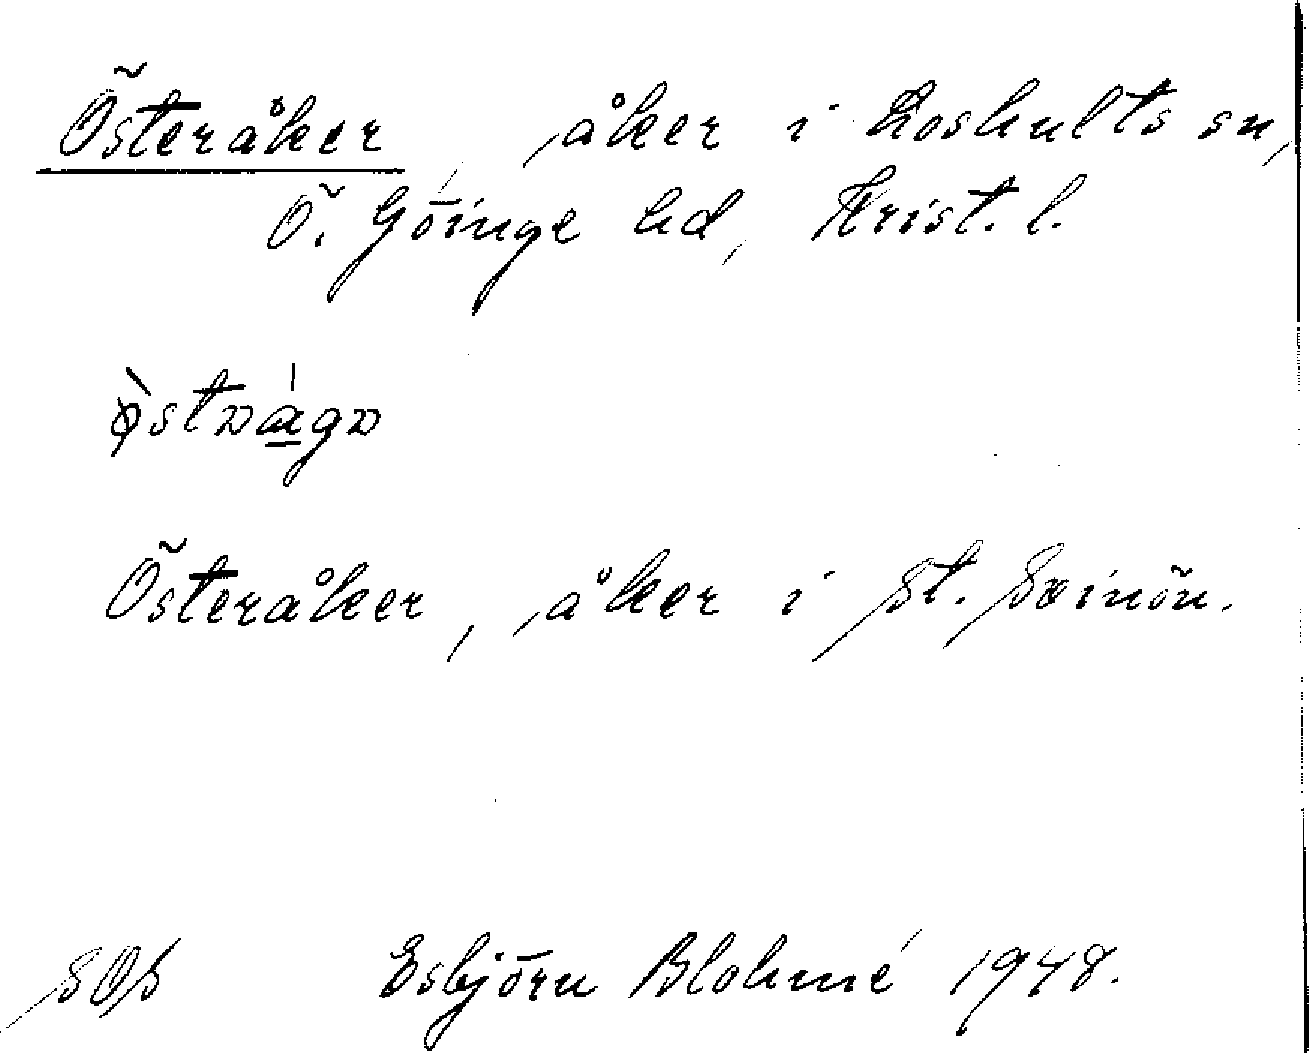 Österåker, åker i Loshults sn,
Ö. Göinge hd, Krist. l.
Österåker, åker i St. Svinön.
SOS Esbjörn Blohmé 1948.